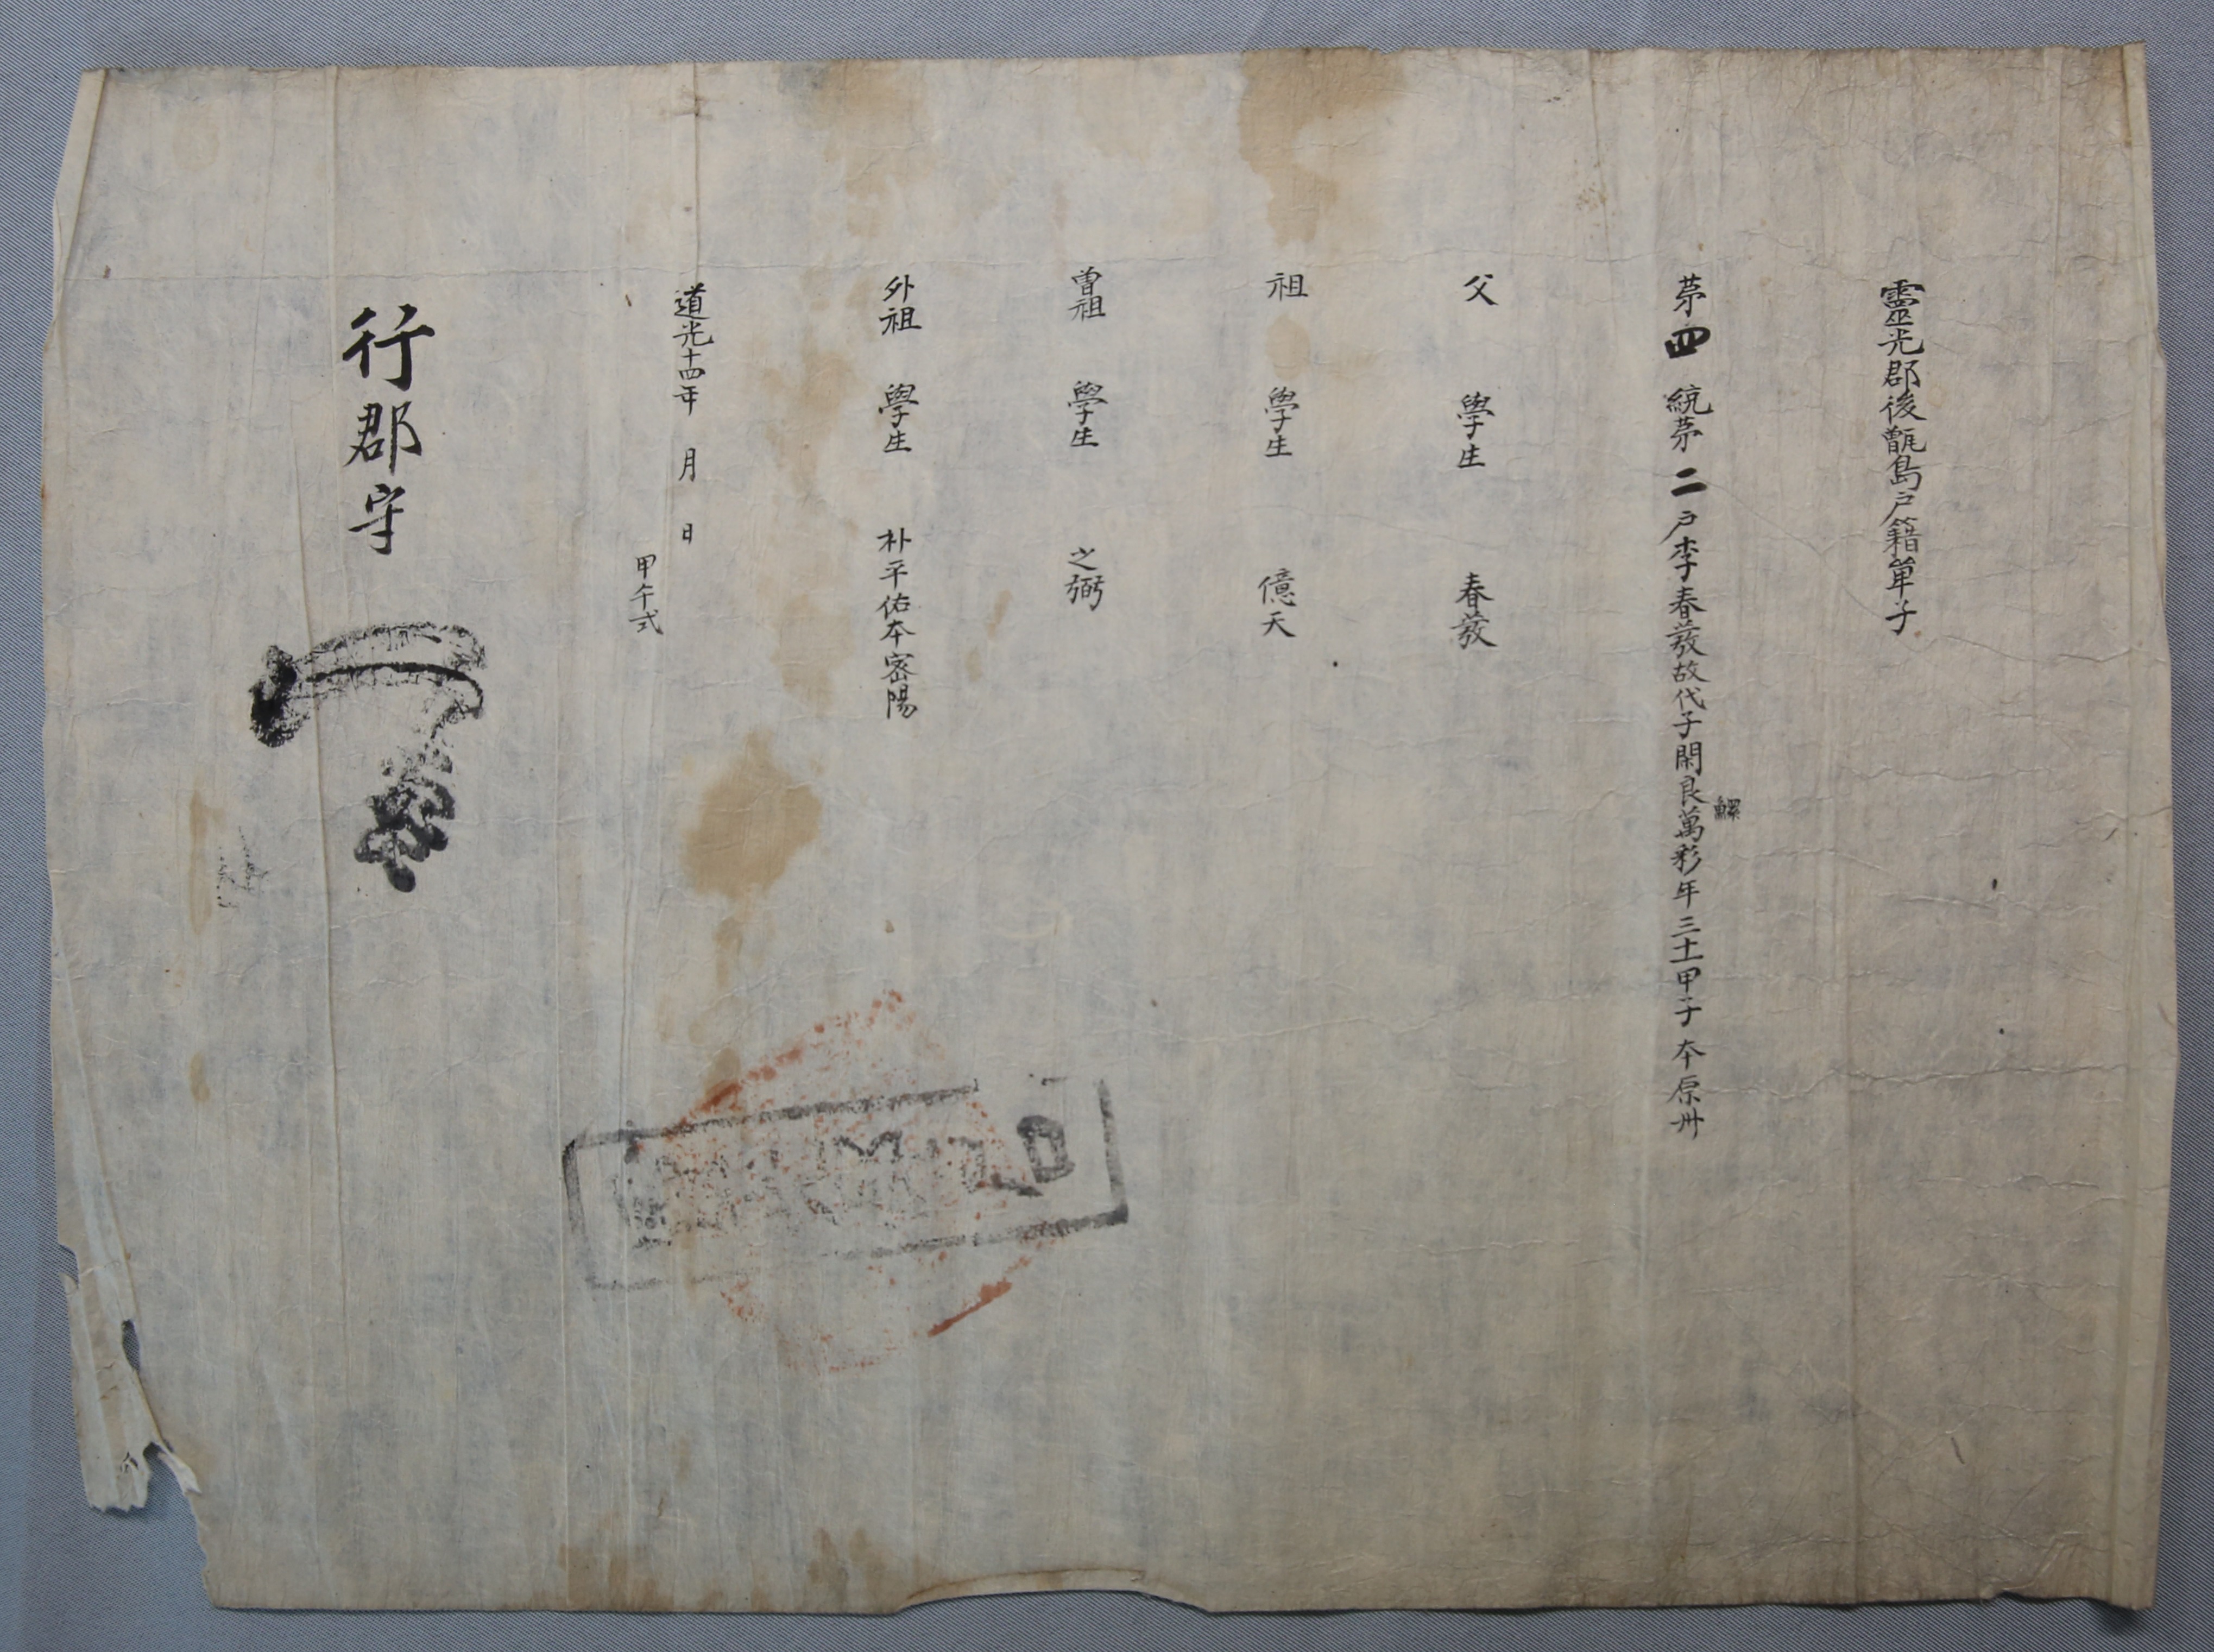 靈光郡後甑島戶籍單子
苐四統苐二戶李春發故代子閑良萬彩年三十一甲子本原州
鰥
父 學生 春發
祖 學生 億天
曽祖 學生 之弼
外祖 學生 朴平佑本密陽
道光十四年 月 日
甲午式
行郡守